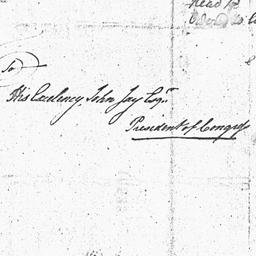 Read
To
His Excelency John Jay Esqr
President of Congress